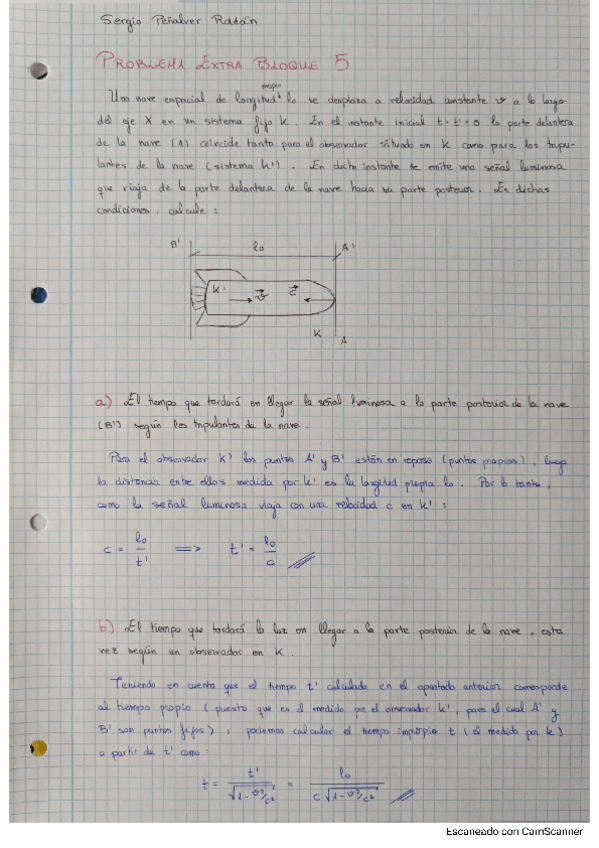 Sergio Peñalver Radán
PROBLEMA EXTRA BLOQUE 5
propia
Una nave espacial de longitud l₀ se desplaza a velocidad constante v a lo largo
del eje X en un sistema fijo K. En el instante inicial t = t' = 0 la parte delantera
de la nave (A) coincide tanto para el observador situado en K como para los tripu-
lantes de la nave (sistema K'). En dicho instante se emite una señal luminosa
que viaja de la parte delantera de la nave hacia su parte posterior. En dichas
condiciones, calcule:
B' l₀ A'
K' v c
K A
a) El tiempo que tardará en llegar la señal luminosa a la parte posterior de la nave
(B') según los tripulantes de la nave.
Para el observador K' los puntos A' y B' están en reposo (puntos propios), luego
la distancia entre ellos medida por K' es la longitud propia l₀. Por lo tanto,
como la señal luminosa viaja con una velocidad c en K':
c = l₀/t' ⟹ t' = l₀/c
b) El tiempo que tardará la luz en llegar a la parte posterior de la nave, esta
vez según un observador en K.
Teniendo en cuenta que el tiempo t' calculado en el apartado anterior corresponde
al tiempo propio (puesto que es el medido por el observador K', para el cual A' y
B' son puntos fijos), podemos calcular el tiempo impropio t (el medido por K)
a partir de t' como:
t = t'/√(1-v²/c²) = l₀/(c√(1-v²/c²))
Escaneado con CamScanner